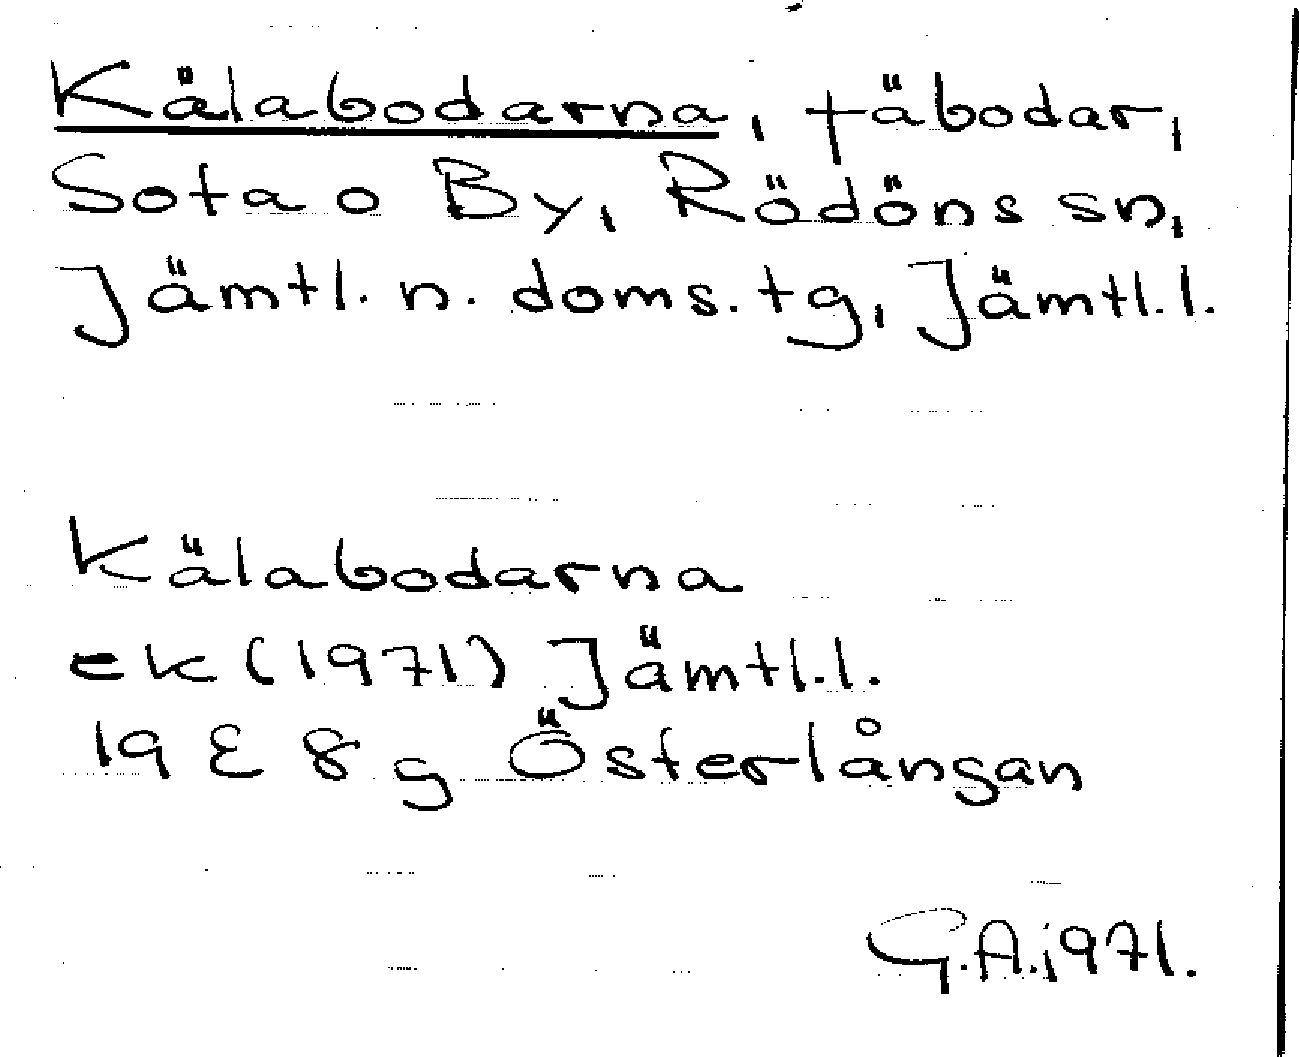 Kälabodarna, täbodar,
Sota o By, Rödöns sn,
Jämtl. n. doms. tg, Jämtl. l.
Kälabodarna
ek (1971) Jämtl. l.
19 E 8 g Österlångan
G.A. 1971.